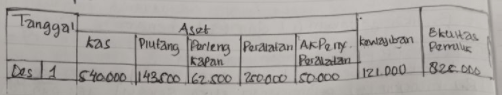 Tanggal Aset Kewajiban Ekuitas Pemilik
Kas Piutang Perlengkapan Peralatan Ak.Peny. Peralatan
Des 1 540.000 143.500 62.500 250.000 50.000 121.000 825.000